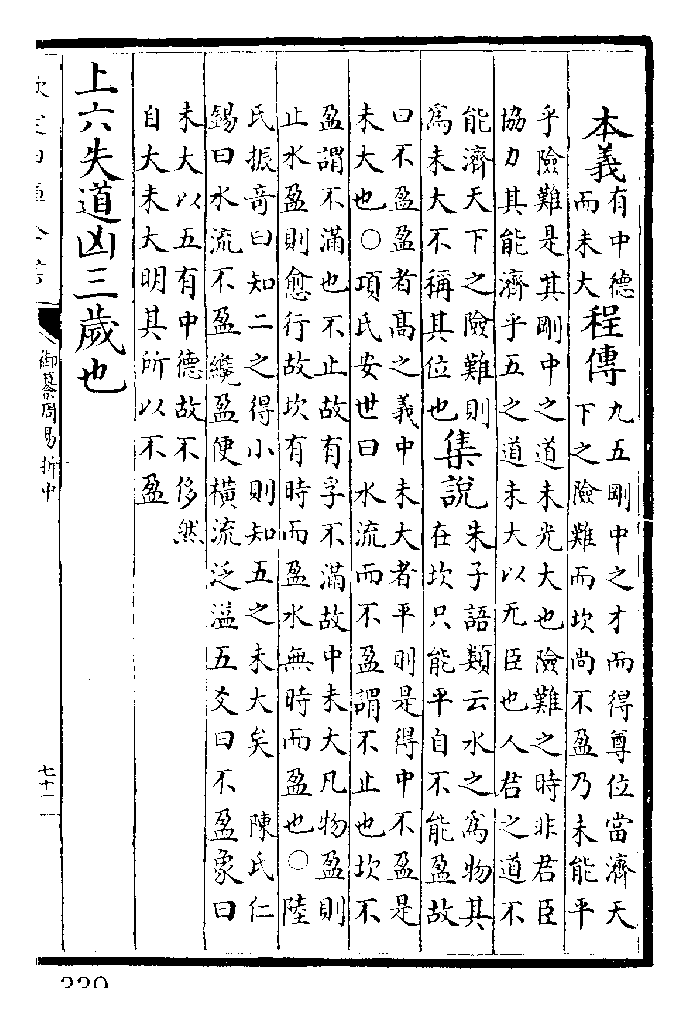 本義有中德
而未大
程傳九五剛中之才而得尊位當濟天
下之險難而坎尚不盈乃未能平
乎險難是其剛中之道未光大也險難之時非君臣
協力其能濟乎五之道未大以无臣也人君之道不
能濟天下之險難則
為未大不稱其位也
集說朱子語類云水之為物其
在坎只能平自不能盈故
曰不盈盈者高之義中未大者平則是得中不盈是
未大也○項氏安世曰水流而不盈謂不止也坎不
盈謂不滿也不止故有孚不滿故中未大凡物盈則
止水盈則愈行故坎有時而盈水無時而盈也○陸
氏振奇曰知二之得小則知五之未大矣 陳氏仁
錫曰水流不盈纔盈便橫流泛溢五爻曰不盈象曰
未大以五有中德故不侈然
自大未大明其所以不盈
上六失道凶三歲也
御纂周易折中
七十二